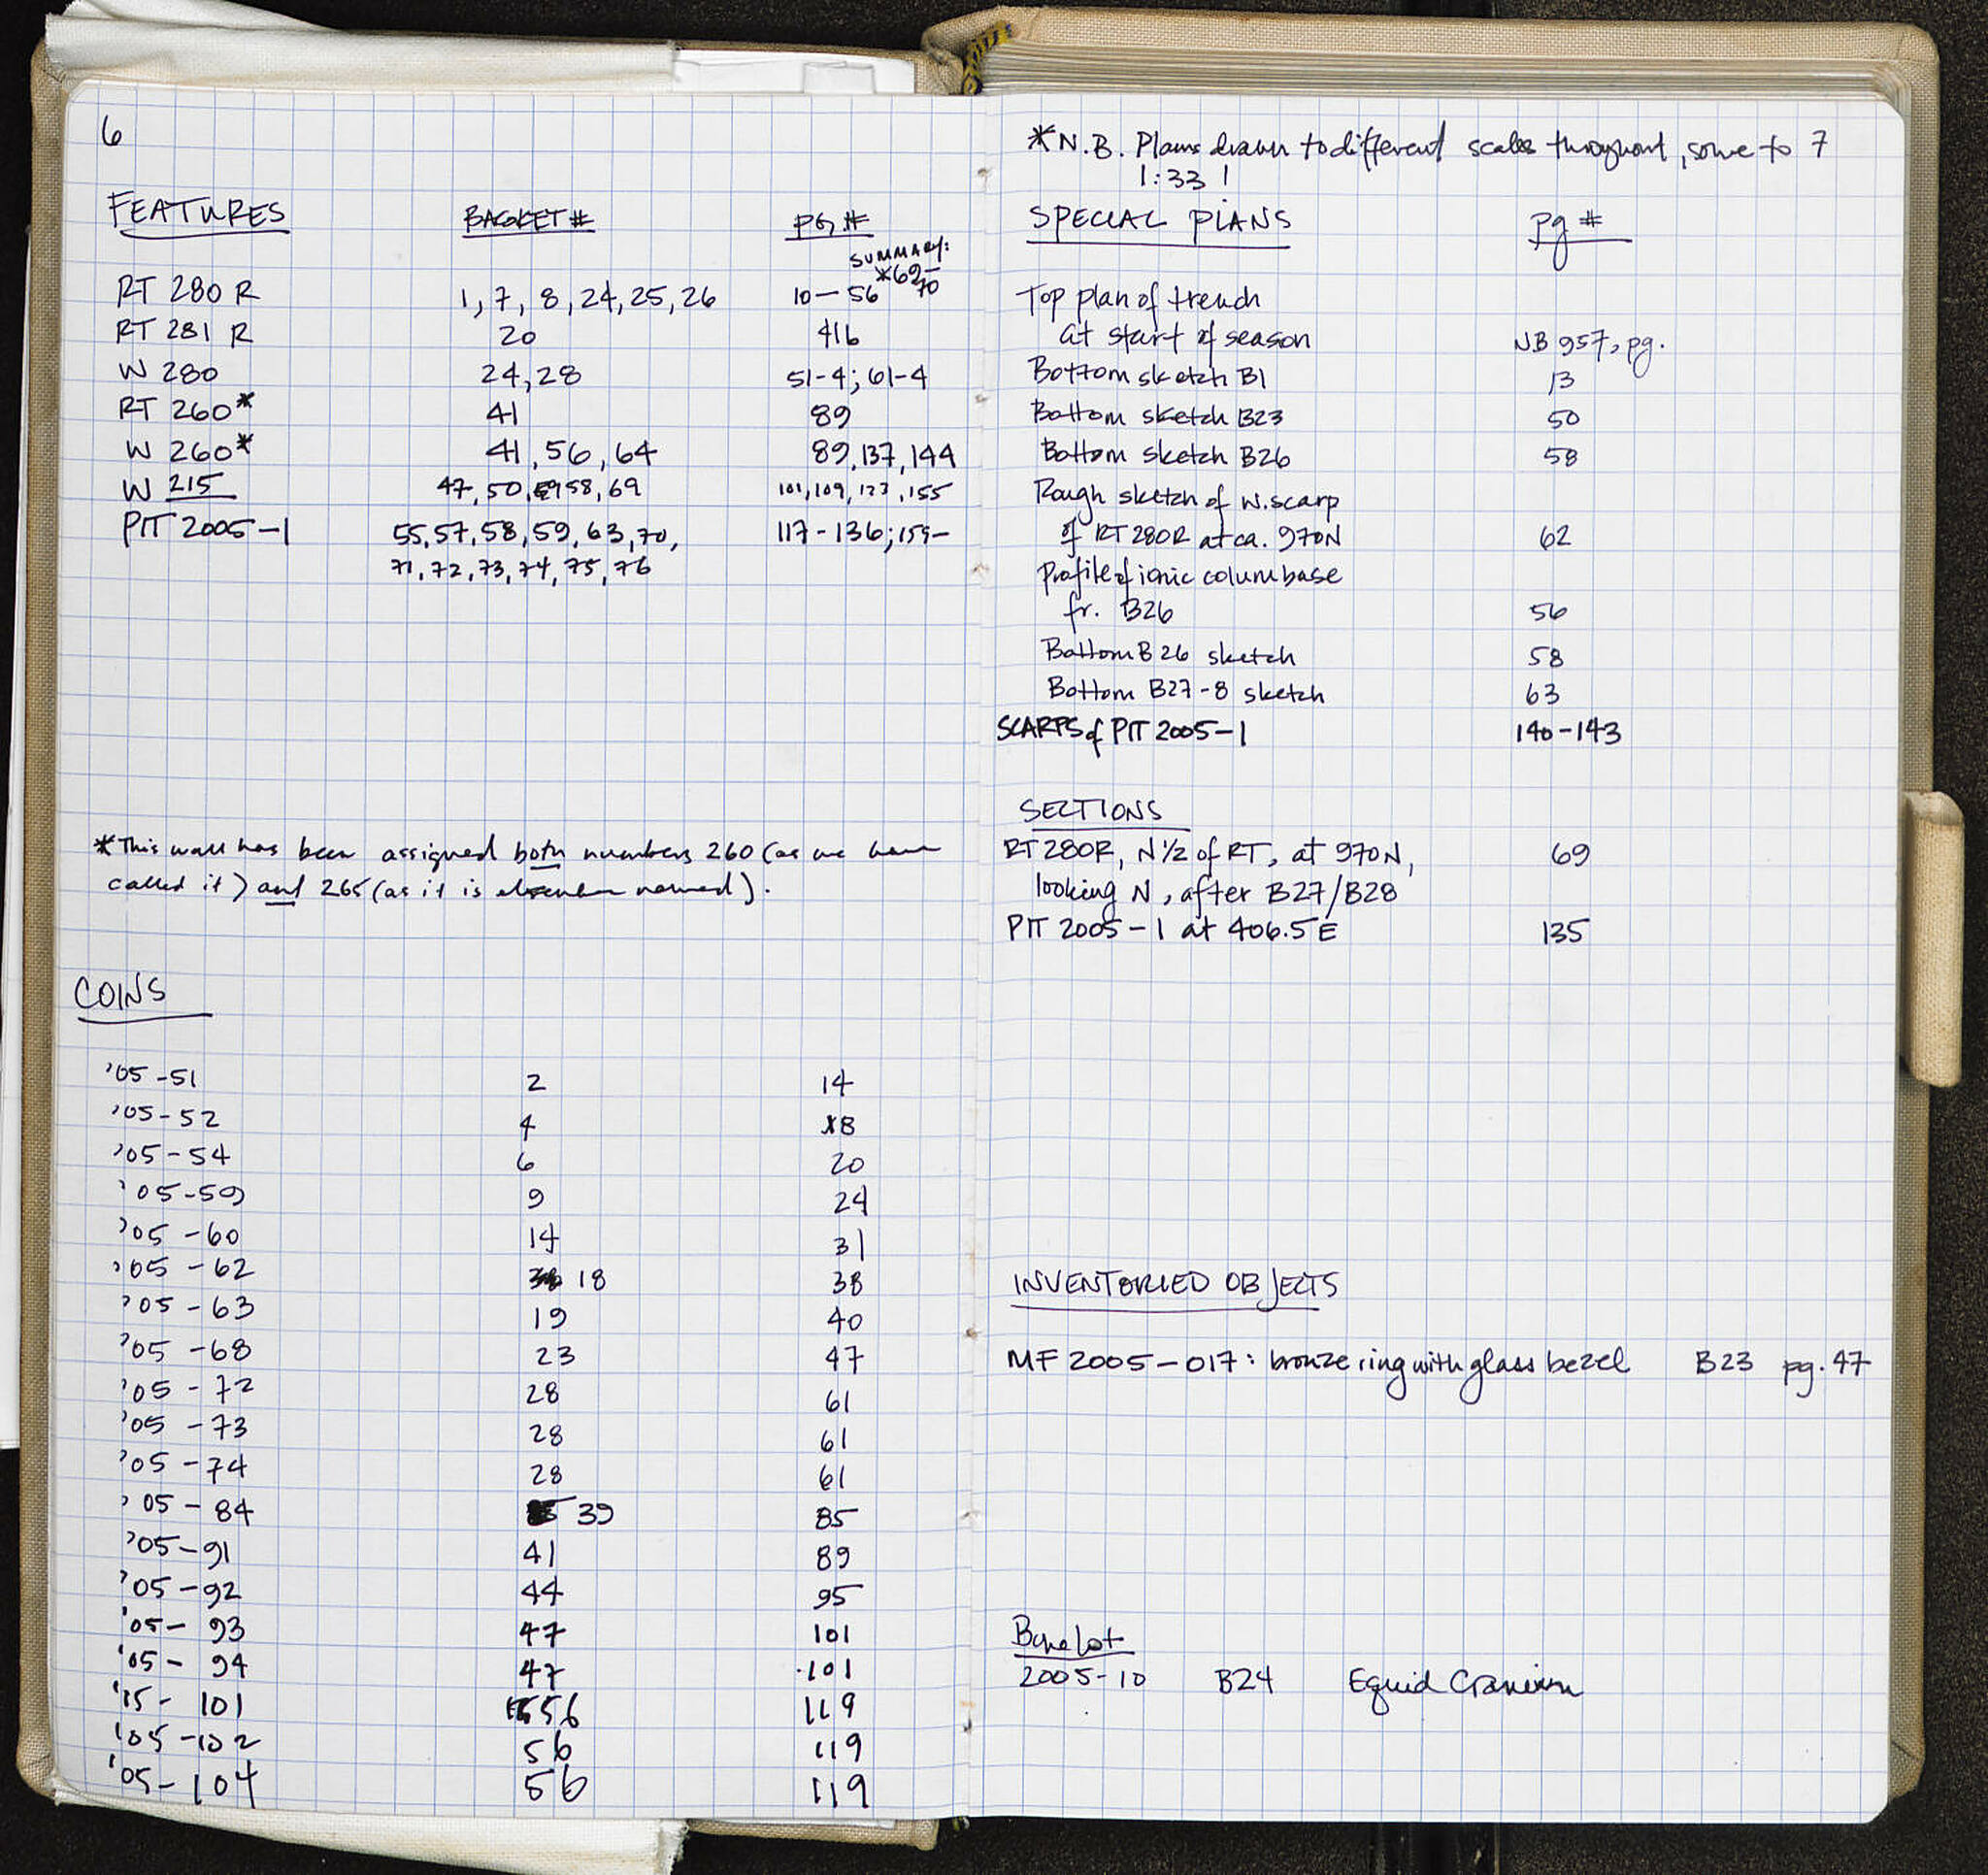 6
FEATURES BASKET # PG. #
SUMMARY:
*69-
70
RT 280 R 1, 7, 8, 24, 25, 26 10-56
RT 281 R 20 416
W 280 24, 28 51-4; 61-4
RT 260* 41 89
W 260* 41, 56, 64 89, 137, 144
W 215 47, 50, 58, 69 101, 109, 123, 155
PIT 2005-1 55, 57, 58, 59, 63, 70, 117-136; 159-
71, 72, 73, 74, 75, 76
*This wall has been assigned both numbers 260 (as we have
called it) and 265 (as it is elsewhere named).
COINS
'05-51 2 14
'05-52 4 18
'05-54 6 20
'05-59 9 24
'05-60 14 31
'05-62 18 38
'05-63 19 40
'05-68 23 47
'05-72 28 61
'05-73 28 61
'05-74 28 61
'05-84 39 85
'05-91 41 89
'05-92 44 95
'05-93 47 101
'05-94 47 101
'05-101 56 119
'05-102 56 119
'05-104 56 119
*N.B. Plans drawn to different scales throughout, some to 7
1:33!
SPECIAL PLANS pg #
Top plan of trench
at start of season NB 957, pg.
Bottom sketch B1 13
Bottom sketch B23 50
Bottom sketch B26 58
Rough sketch of W. scarp
of RT 280R at ca. 970N 62
Profile of ionic column base
fr. B26 56
Bottom B26 sketch 58
Bottom B27-8 sketch 63
SCARPS of PIT 2005-1 140-143
SECTIONS
RT 280R, N 1/2 of RT, at 970N, 69
looking N, after B27/B28
PIT 2005-1 at 406.5E 135
INVENTORIED OBJECTS
MF 2005-017: bronze ring with glass bezel B23 pg. 47
Bone Lot
2005-10 B24 Equid Cranium